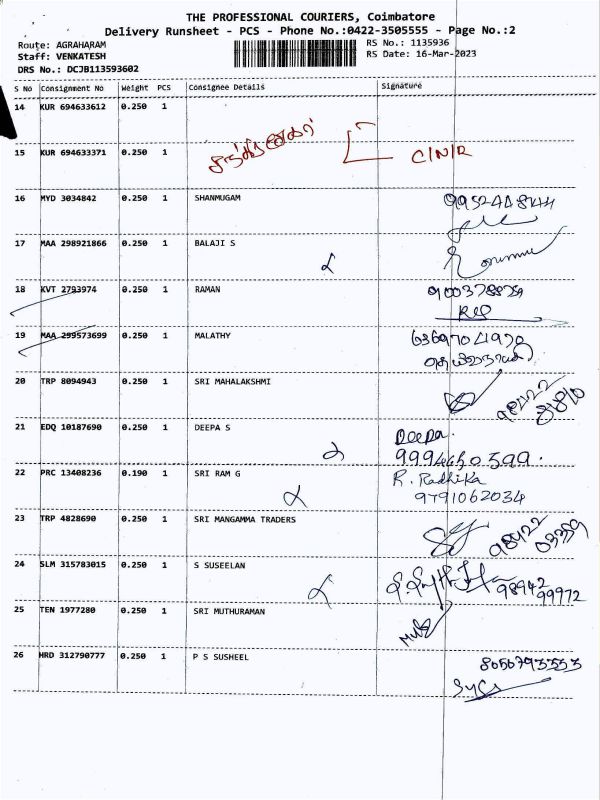 THE PROFESSIONAL COURIERS, Coimbatore
Delivery Runsheet - PCS - Phone No.:0422-3505555 - Page No.:2
Route: AGRAHARAM
Staff: VENKATESH
DRS No.: DCJB113593602
RS No.: 1135936
RS Date: 16-Mar-2023
S No Consignment No Weight PCS Consignee Details Signature
14 KUR 694633612 0.250 1
15 KUR 694633371 0.250 1 C/N/R
16 MYD 3034842 0.250 1 SHANMUGAM
17 MAA 298921866 0.250 1 BALAJI S
18 KVT 2793974 0.250 1 RAMAN
19 MAA 299573699 0.250 1 MALATHY
20 TRP 8094943 0.250 1 SRI MAHALAKSHMI
21 EDQ 10187690 0.250 1 DEEPA S Deepa.
22 PRC 13408236 0.190 1 SRI RAM G R. Radhika
9791062034
23 TRP 4828690 0.250 1 SRI MANGAMMA TRADERS 98422
03359
24 SLM 315783015 0.250 1 S SUSEELAN 98942
99972
25 TEN 1977280 0.250 1 SRI MUTHURAMAN
26 HRD 312790777 0.250 1 P S SUSHEEL